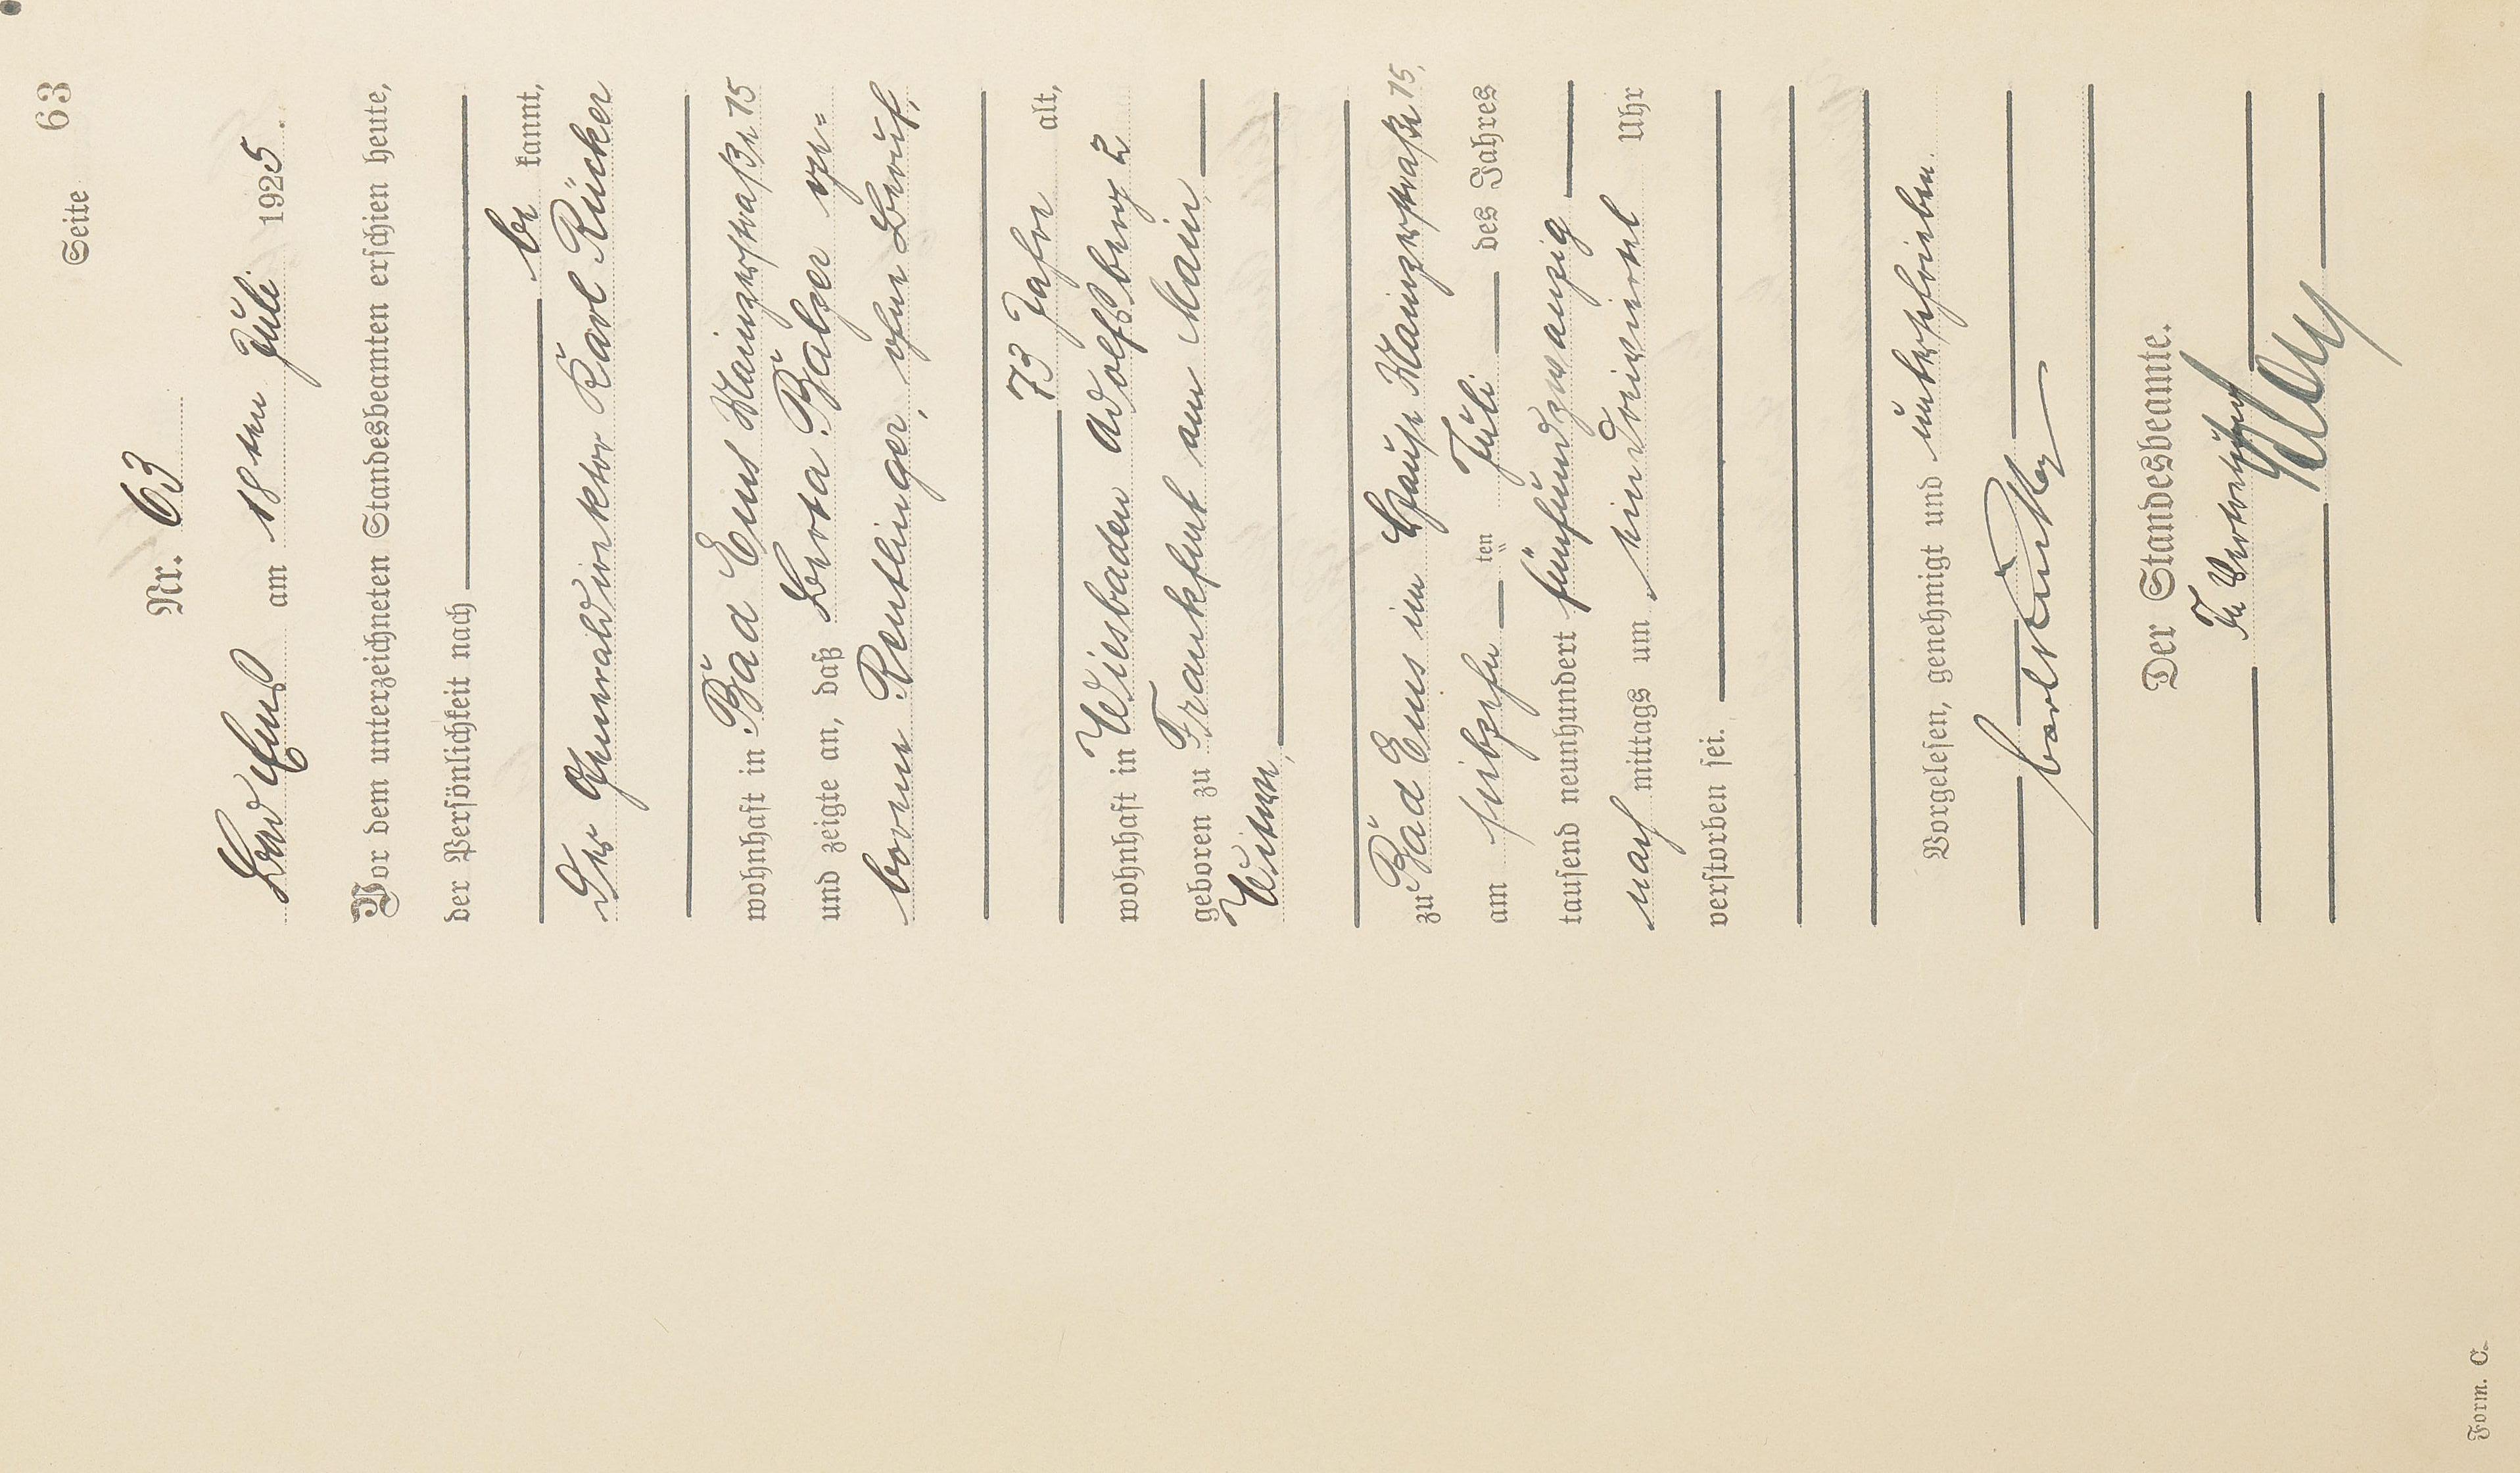 Seite 63
Nr. 63
Bad Ems am 18ten Juli 1925.
Vor dem unterzeichneten Standesbeamten erschien heute,
der Persönlichkeit nach
be kannt,
Der Generaldirektor Karl Rücker
wohnhaft in Bad Ems Mainzerstraße 15
und zeigte an, daß Berta Balzer ge-
borene Reutlinger, ohne Beruf,
73 Jahre alt,
wohnhaft in Wiesbaden Adolfsberg 2
geboren zu Frankfurt am Main,
Witwe,
zu Bad Ems im Hause Mainzerstraße 15,
am siebzehn ten Juli des Jahres
tausend neunhundert fünfundzwanzig
nach mittags um eindreiviertel Uhr
verstorben sei.
Vorgelesen, genehmigt und unterschrieben.
Carl Rücker
Der Standesbeamte.
In Vertretung
Form. C.